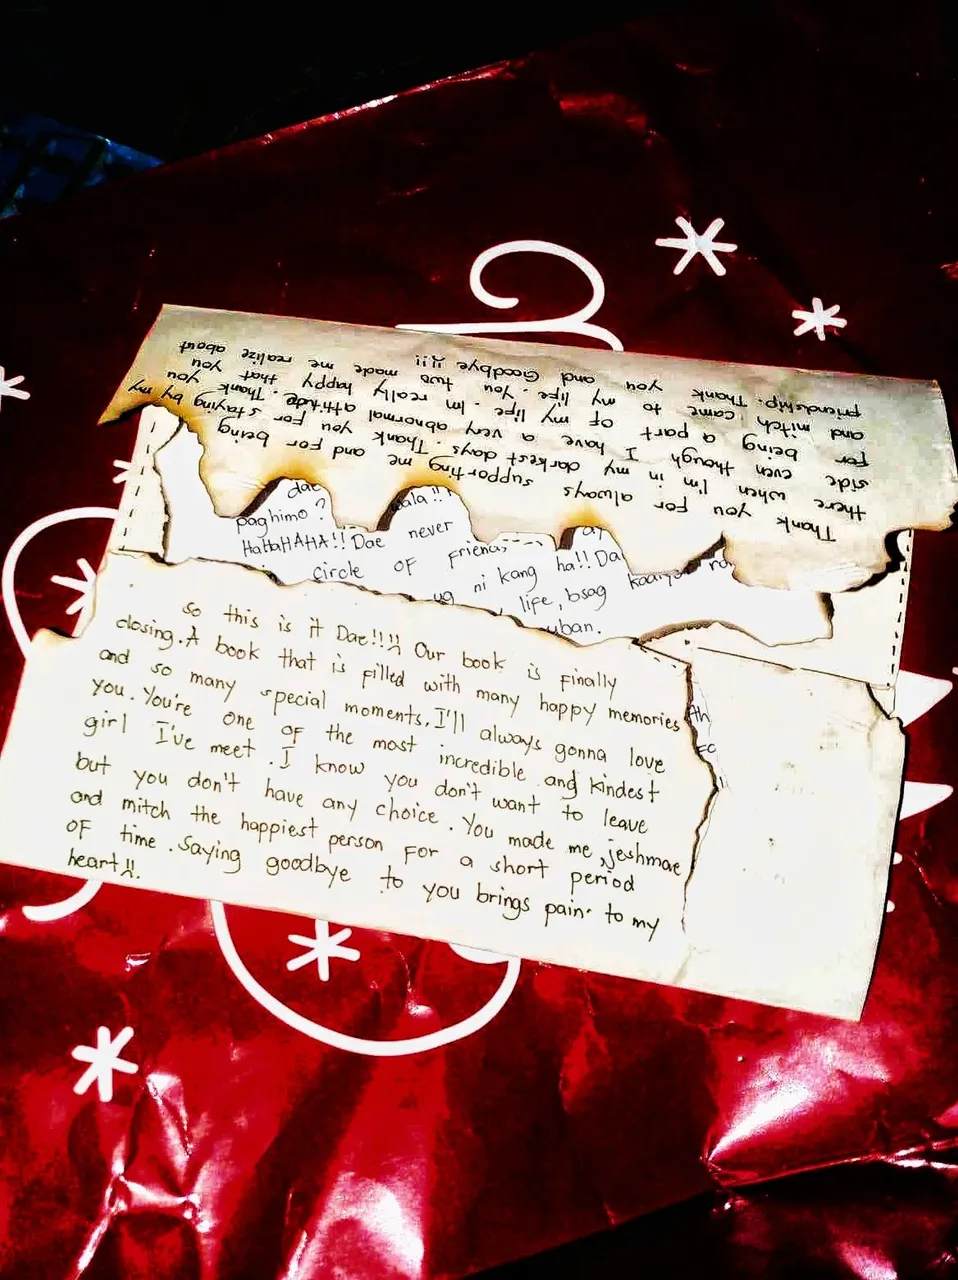 Thank you for always supporting me and for being
there when I'm in my darkest days. Thank you for staying by my
side even though I have a very abnormal attitude. Thank you
for being a part of my life. Im really happy that you
and mitch came to my life. You two made me realize about
friendship. Thank you and Goodbye !!!
dae wala!!
paghimo?
HaHaHAHA!! Dae never
circle OF Friends
ug ni kang ha!! Da
life, bsag
uban.
so this is it Dae!!!! Our book is finally
closing. A book that is filled with many happy memories
and so many special moments. I'll always gonna love
you. You're one of the most incredible and kindest
girl I've meet. I know you don't want to leave
but you don't have any choice. You made me, jeshmae
and mitch the happiest person for a short period
OF time. Saying goodbye to you brings pain to my
heart!!.